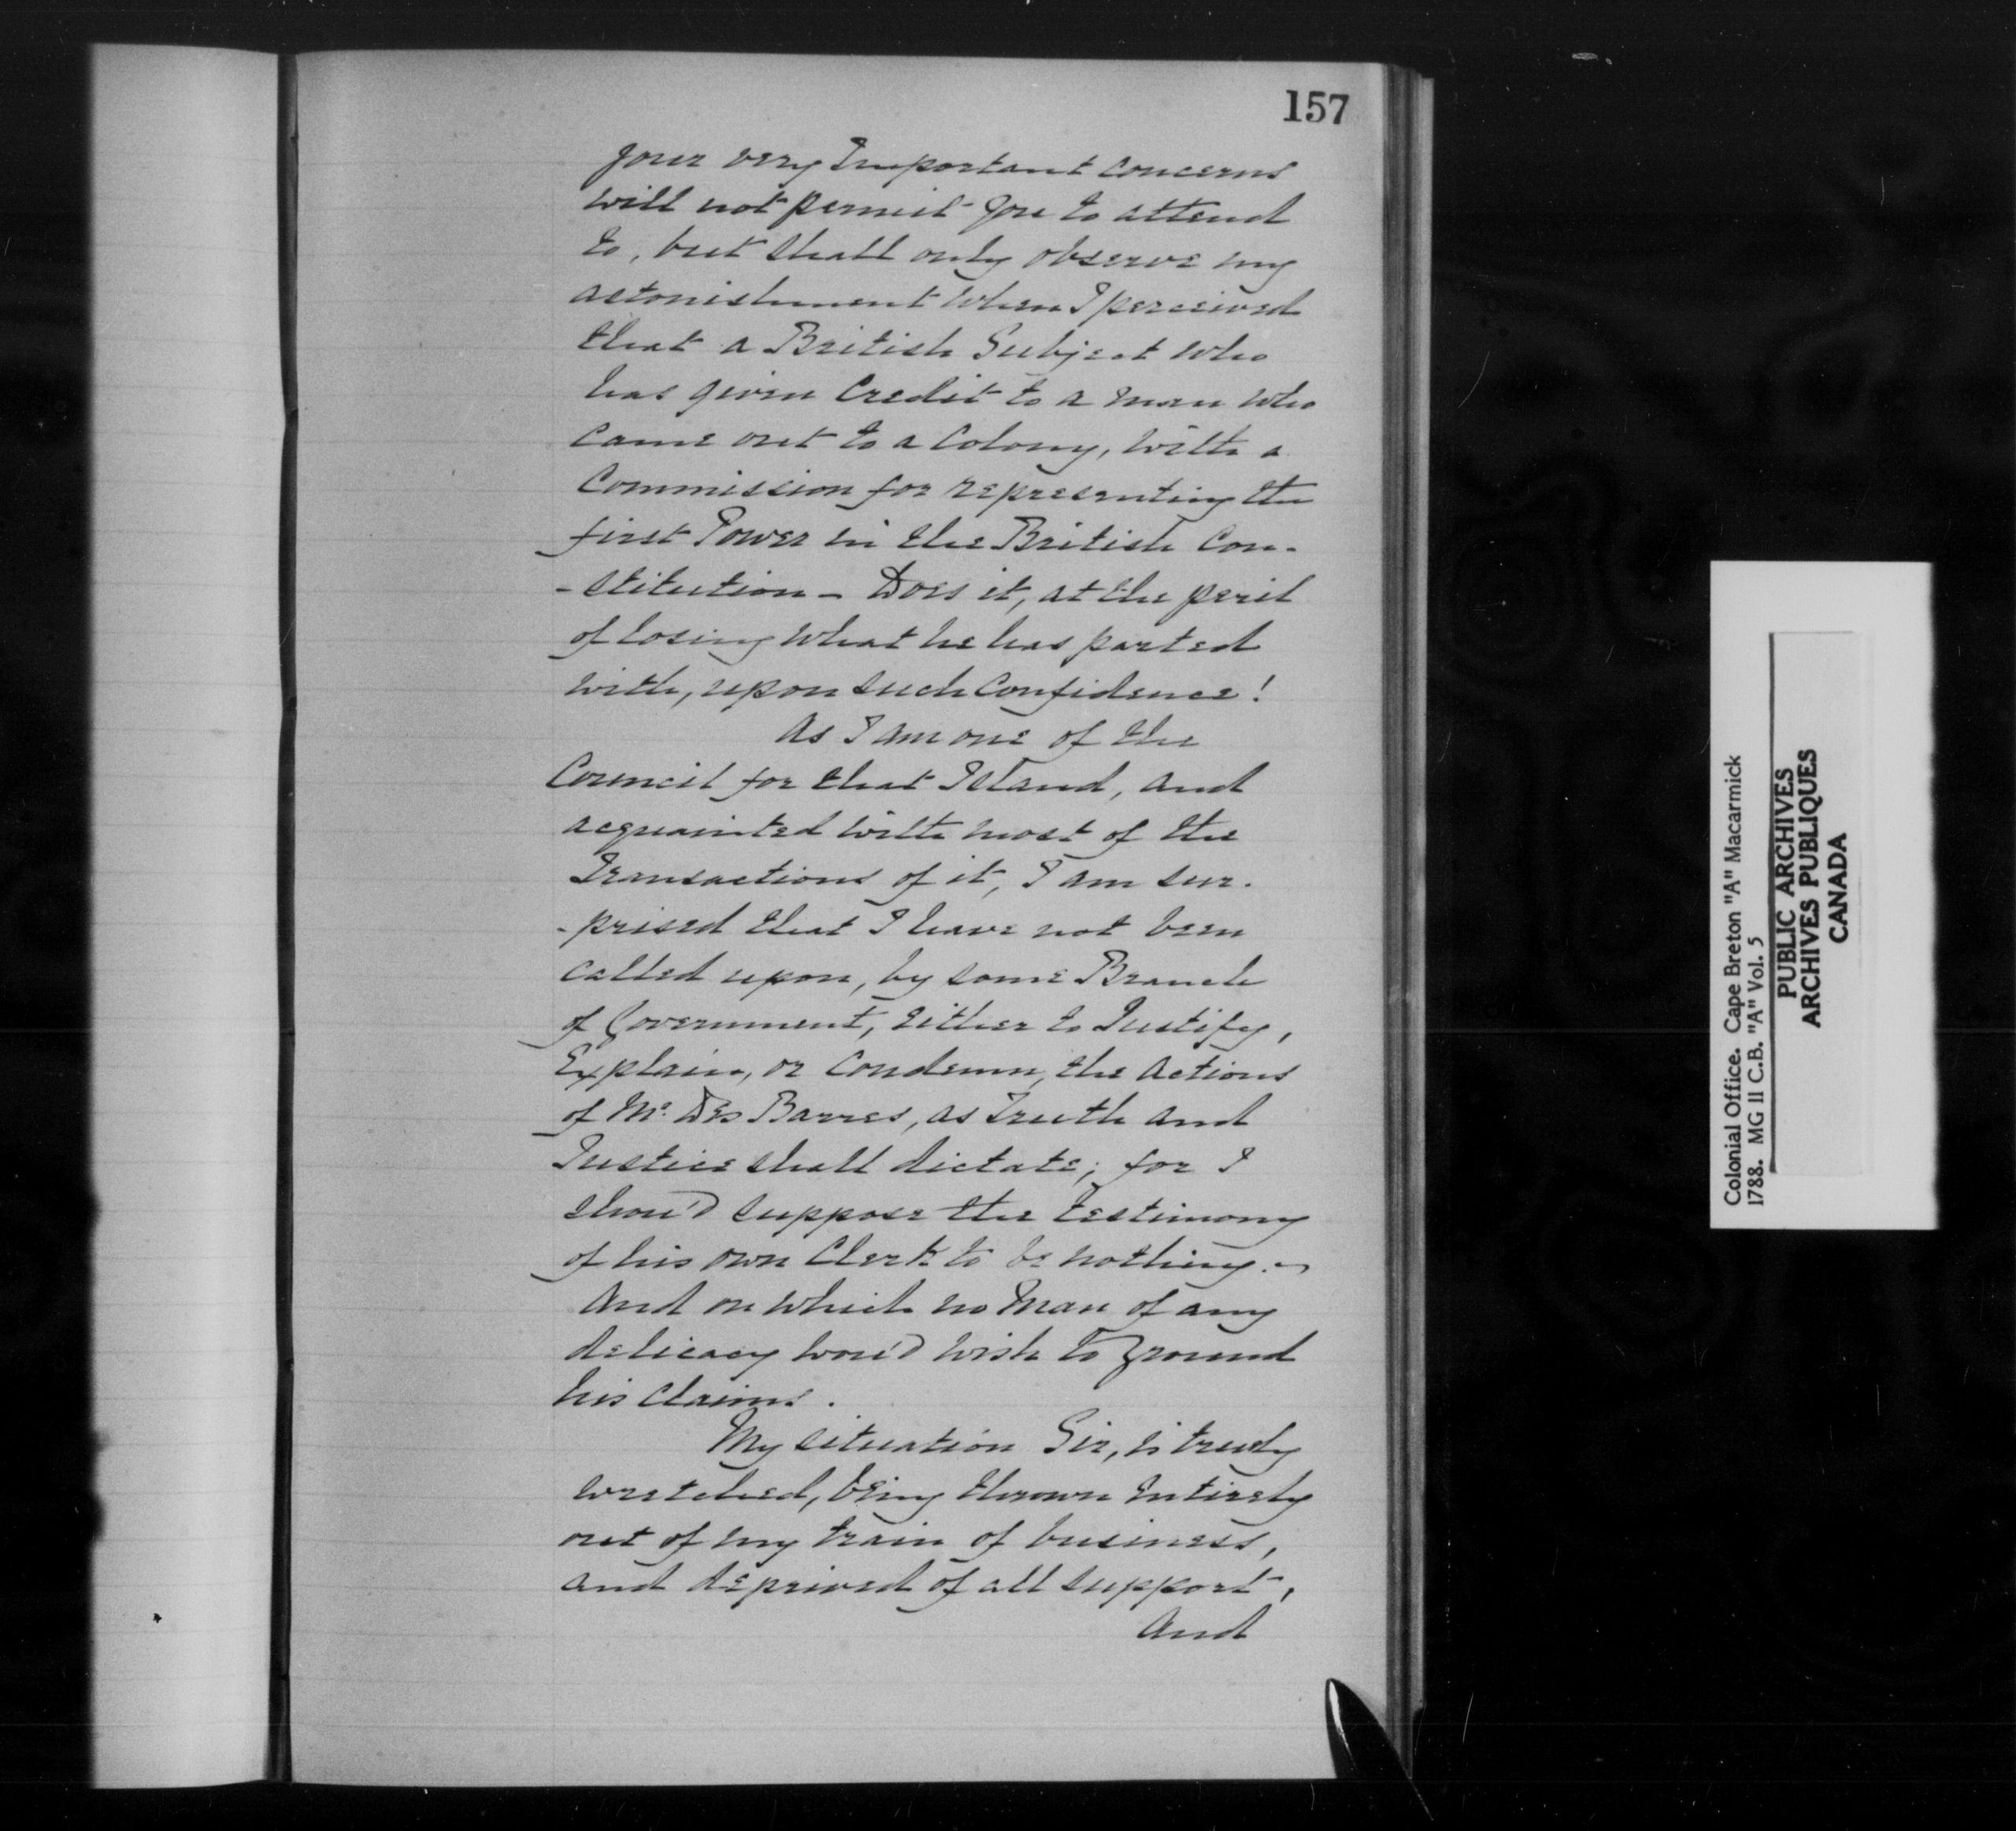 157
your very Important concerns
will not permit you to attend
to, but shall only observe my
astonishment when I perceived
that a British Subject who
has given Credit to a man who
came out to a Colony, with a
Commission for representing the
first Power in the British Con-
-stitution - Does it, at the peril
of losing what he has parted
with, upon such Confidence!
As I am one of the
Council for that Island, and
acquainted with most of the
Transactions of it, I am sur-
-prised that I have not been
called upon, by some Branch
of Government, either to Justify,
Explain, or Condemn, the actions
of Mr. Des Barres, as Truth and
Justice shall dictate; for I
shou'd suppose the testimony
of his own Clerk to be nothing. -
And on which no Man of any
delicacy wou'd wish to ground
his claims.
My situation Sir, is truly
wretched, being thrown entirely
out of my train of business,
and deprived of all support,
And
Colonial Office. Cape Breton "A" Macarmick
1788. MG 11 C.B. "A" Vol. 5
PUBLIC ARCHIVES
ARCHIVES PUBLIQUES
CANADA